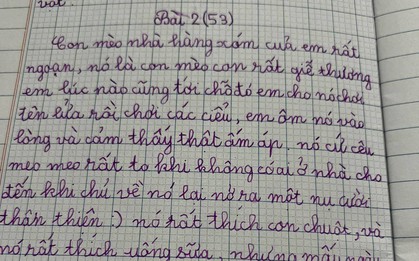 vật.
Bài 2 (53)
Con mèo nhà hàng xóm cuả em rất
ngoan, nó là con mèo con rất giễ thương
em lúc nào cũng tới chỗ đó em cho nó chơi
tên lửa rồi chơi các kiểu, em ôm nó vào
lòng và cảm thấy thật ấm áp, nó cứ kêu
meo meo rất to khi không có ai ở nhà cho
đến khi chủ về nó lại nở ra một nụ cười
thân thiện :) nó rất thích con chuột, và
nó rất thích uống sữa, nhưng mấy ngày